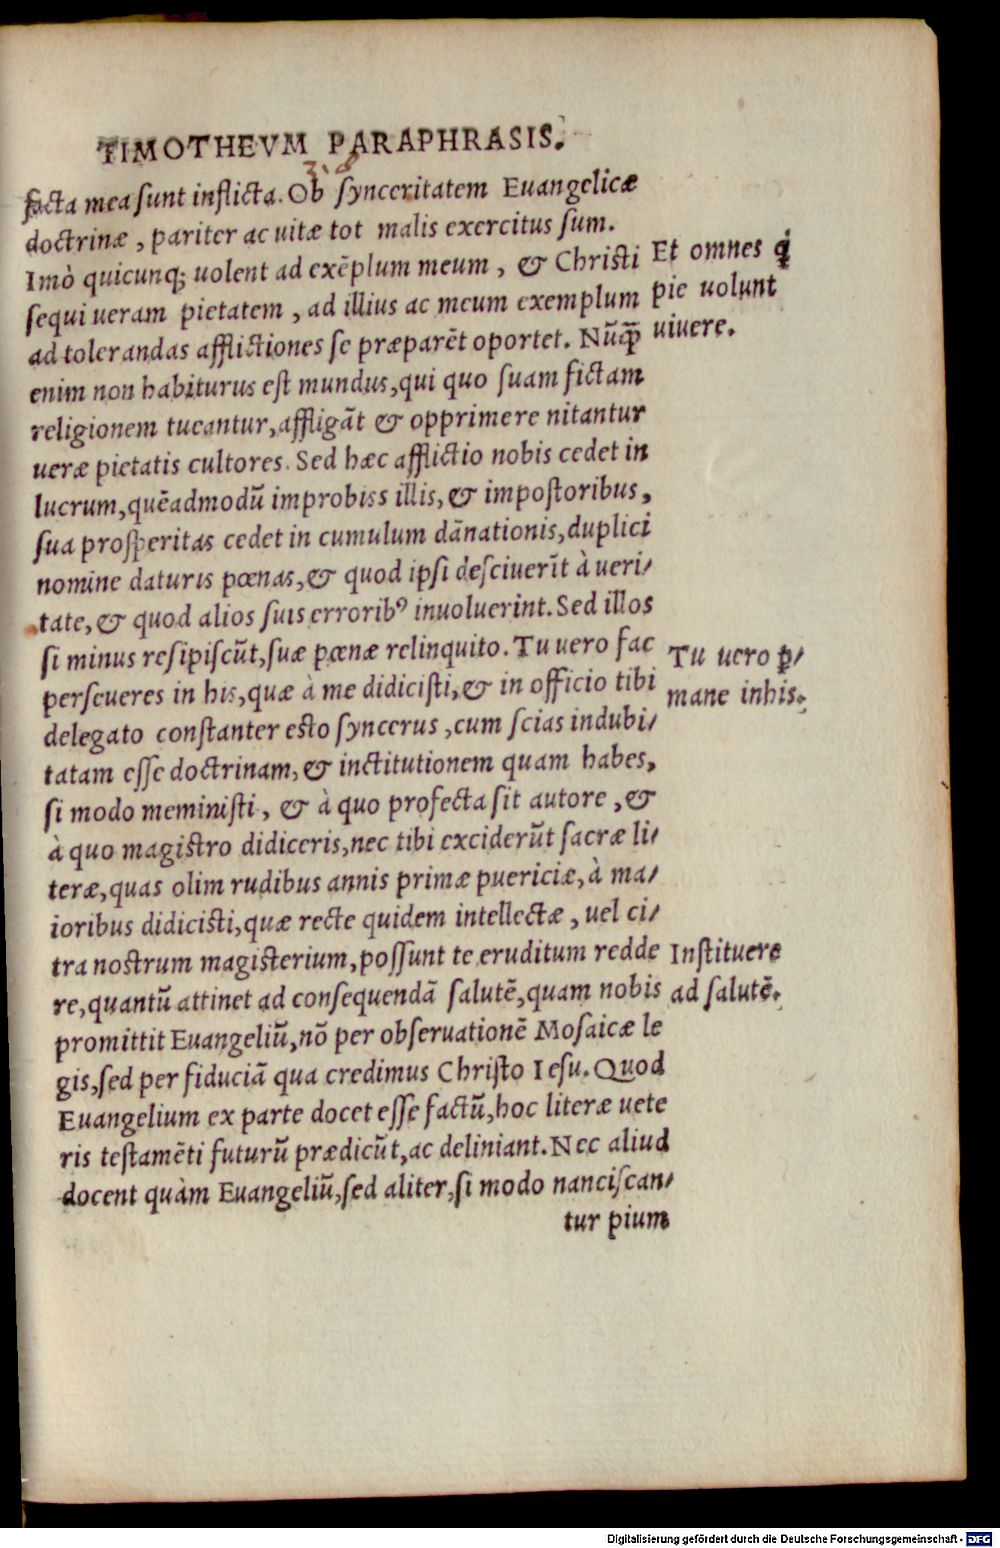 TIMOTHEVM PARAPHRASIS.
facta mea sunt inflicta. Ob synceritatem Euangelicæ
doctrinæ, pariter ac uitæ tot malis exercitus sum.
Imò quicunq; uolent ad exēplum meum, & Christi
sequi ueram pietatem, ad illius ac meum exemplum
ad tolerandas afflictiones se præparēt oportet. Nūq̄
enim non habiturus est mundus, qui quo suam fictam
religionem tueantur, affligāt & opprimere nitantur
ueræ pietatis cultores. Sed hæc afflictio nobis cedet in
lucrum, quēadmodū improbiss illis, & impostoribus,
sua prosperitas cedet in cumulum dānationis, duplici
nomine daturis pœnas, & quod ipsi desciuerīt à ueri/
tate, & quod alios suis errorib⁹ inuoluerint. Sed illos
si minus resipiscūt, suæ pœnæ relinquito. Tu uero fac
perseueres in his, quæ à me didicisti, & in officio tibi
delegato constanter esto syncerus, cum scias indubi/
tatam esse doctrinam, & inctitutionem quam habes,
si modo meministi, & à quo profecta sit autore, &
à quo magistro didiceris, nec tibi exciderūt sacræ li/
teræ, quas olim rudibus annis primæ puericiæ, à ma/
ioribus didicisti, quæ recte quidem intellectæ, uel ci/
tra nostrum magisterium, possunt te eruditum redde
re, quantū attinet ad consequendā salutē, quam nobis
promittit Euangeliū, nō per obseruationē Mosaicæ le
gis, sed per fiduciā qua credimus Christo Iesu. Quod
Euangelium ex parte docet esse factū, hoc literæ uete
ris testamēti futurū prædicūt, ac deliniant. Nec aliud
docent quàm Euangeliū, sed aliter, si modo nanciscan/
tur pium
Et omnes q̇
pie uolunt
uiuere.
Tu uero ꝑ/
mane inhis.
Instituere
ad salutē.
Digitalisierung gefördert durch die Deutsche Forschungsgemeinschaft - DFG